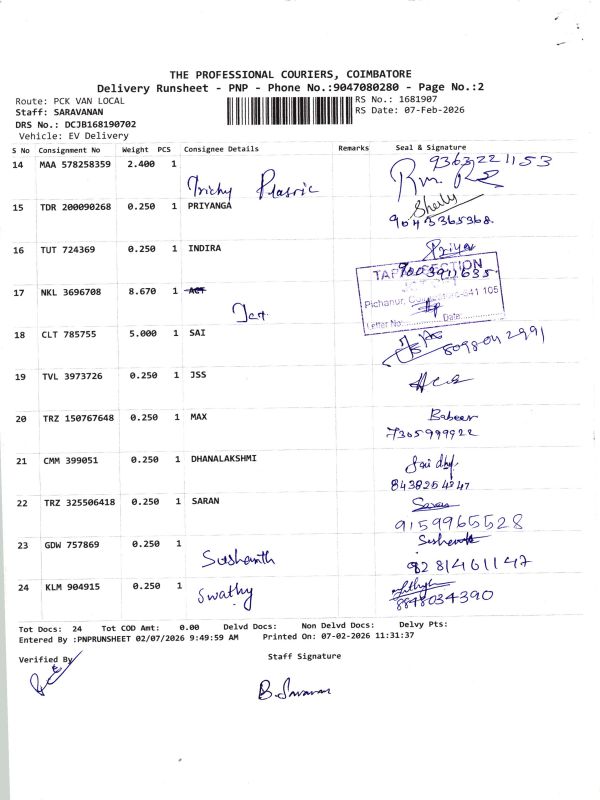 THE PROFESSIONAL COURIERS, COIMBATORE
Delivery Runsheet - PNP - Phone No.:9047080280 - Page No.:2
Route: PCK VAN LOCAL
RS No.: 1681907
Staff: SARAVANAN
RS Date: 07-Feb-2026
DRS No.: DCJB168190702
Vehicle: EV Delivery
S No Consignment No Weight PCS Consignee Details Remarks Seal & Signature
14 MAA 578258359 2.400 1 Trichy Plasric 9363221153
15 TDR 200090268 0.250 1 PRIYANGA Sherly
9043365368
16 TUT 724369 0.250 1 INDIRA Priya
9003911635
17 NKL 3696708 8.670 1 ACT
Pichanur, 641 105
Letter No: Date:
18 CLT 785755 5.000 1 SAI 8098042991
19 TVL 3973726 0.250 1 JSS
20 TRZ 150767648 0.250 1 MAX Babeer
7305999922
21 CMM 399051 0.250 1 DHANALAKSHMI
8438254247
22 TRZ 325506418 0.250 1 SARAN Saran
9159965528
23 GDW 757869 0.250 1 Sushanth
9281461147
24 KLM 904915 0.250 1 Swathy
8848034390
Tot Docs: 24 Tot COD Amt: 0.00 Delvd Docs: Non Delvd Docs: Delvy Pts:
Entered By :PNPRUNSHEET 02/07/2026 9:49:59 AM Printed On: 07-02-2026 11:31:37
Verified By
Staff Signature